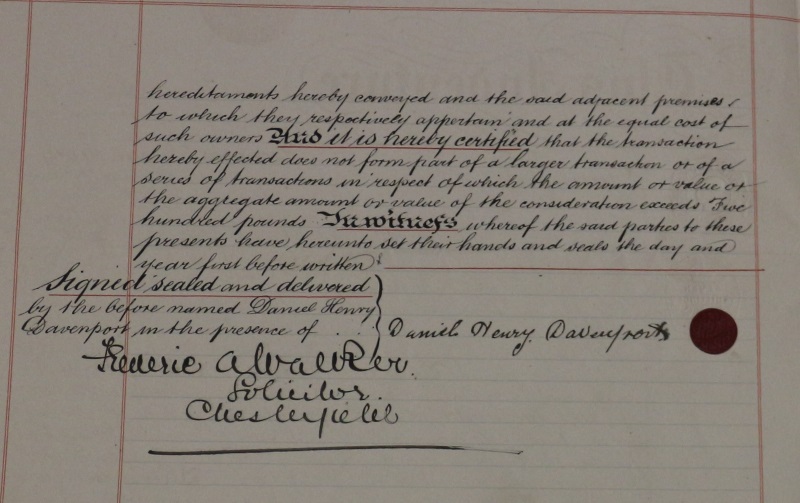 hereditaments hereby conveyed and the said adjacent premises
to which they respectively appertain and at the equal cost of
such owners And it is hereby certified that the transaction
hereby effected does not form part of a larger transaction or of a
series of transactions in respect of which the amount or value or
the aggregate amount or value of the consideration exceeds Five
hundred pounds In witness whereof the said parties to these
presents have hereunto set their hands and seals the day and
year first before written
Signed sealed and delivered
by the before named Daniel Henry
Davenport in the presence of . . .
Daniel Henry Davenport
Frederic A Walker.
Solicitor.
Chesterfield